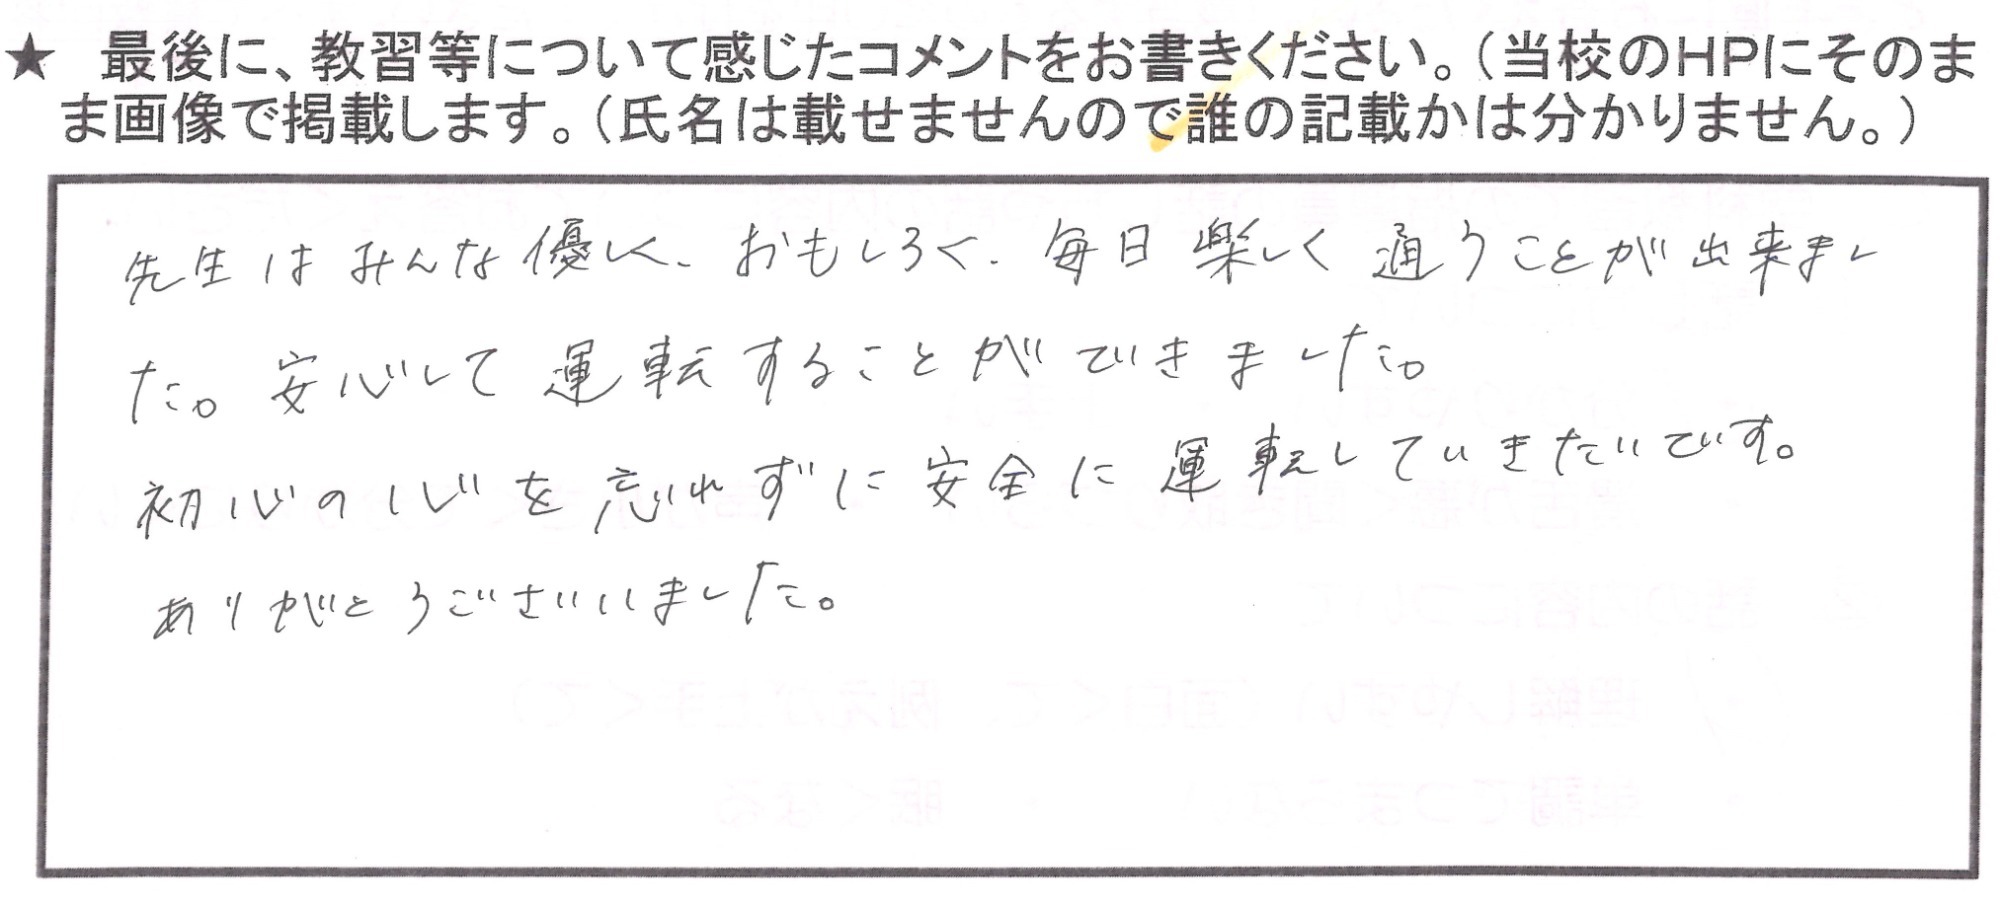 ★ 最後に、教習等について感じたコメントをお書きください。(当校のHPにそのま
ま画像で掲載します。(氏名は載せませんので誰の記載かは分かりません。)
先生はみんな優しく、おもしろく、毎日楽しく通うことが出来まし
た。安心して運転することができました。
初心の心を忘れずに安全に運転していきたいです。
ありがとうございました。